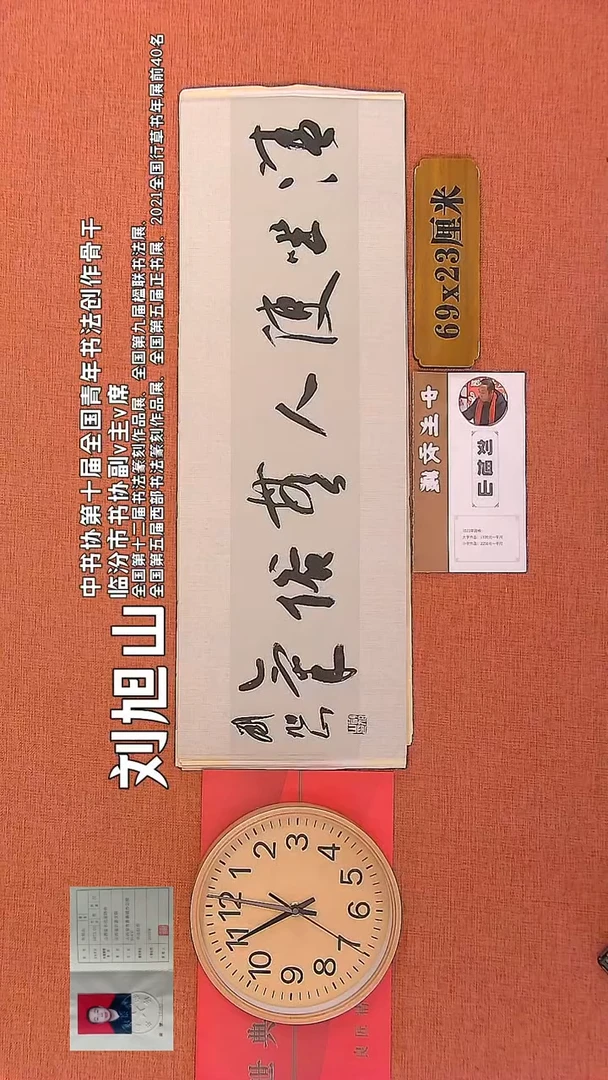 中书协第十届全国青年书法创作骨干
临汾市书协副v主v席
全国第十二届书法篆刻作品展、全国第九届楹联书法展、
全国第五届西部书法篆刻作品展、全国第五届正书展、2021全国行草书年展前40名
刘旭山
清坐使人無俗氣
69x23厘米
刘旭山
12
1
2
3
4
5
6
7
8
9
10
11